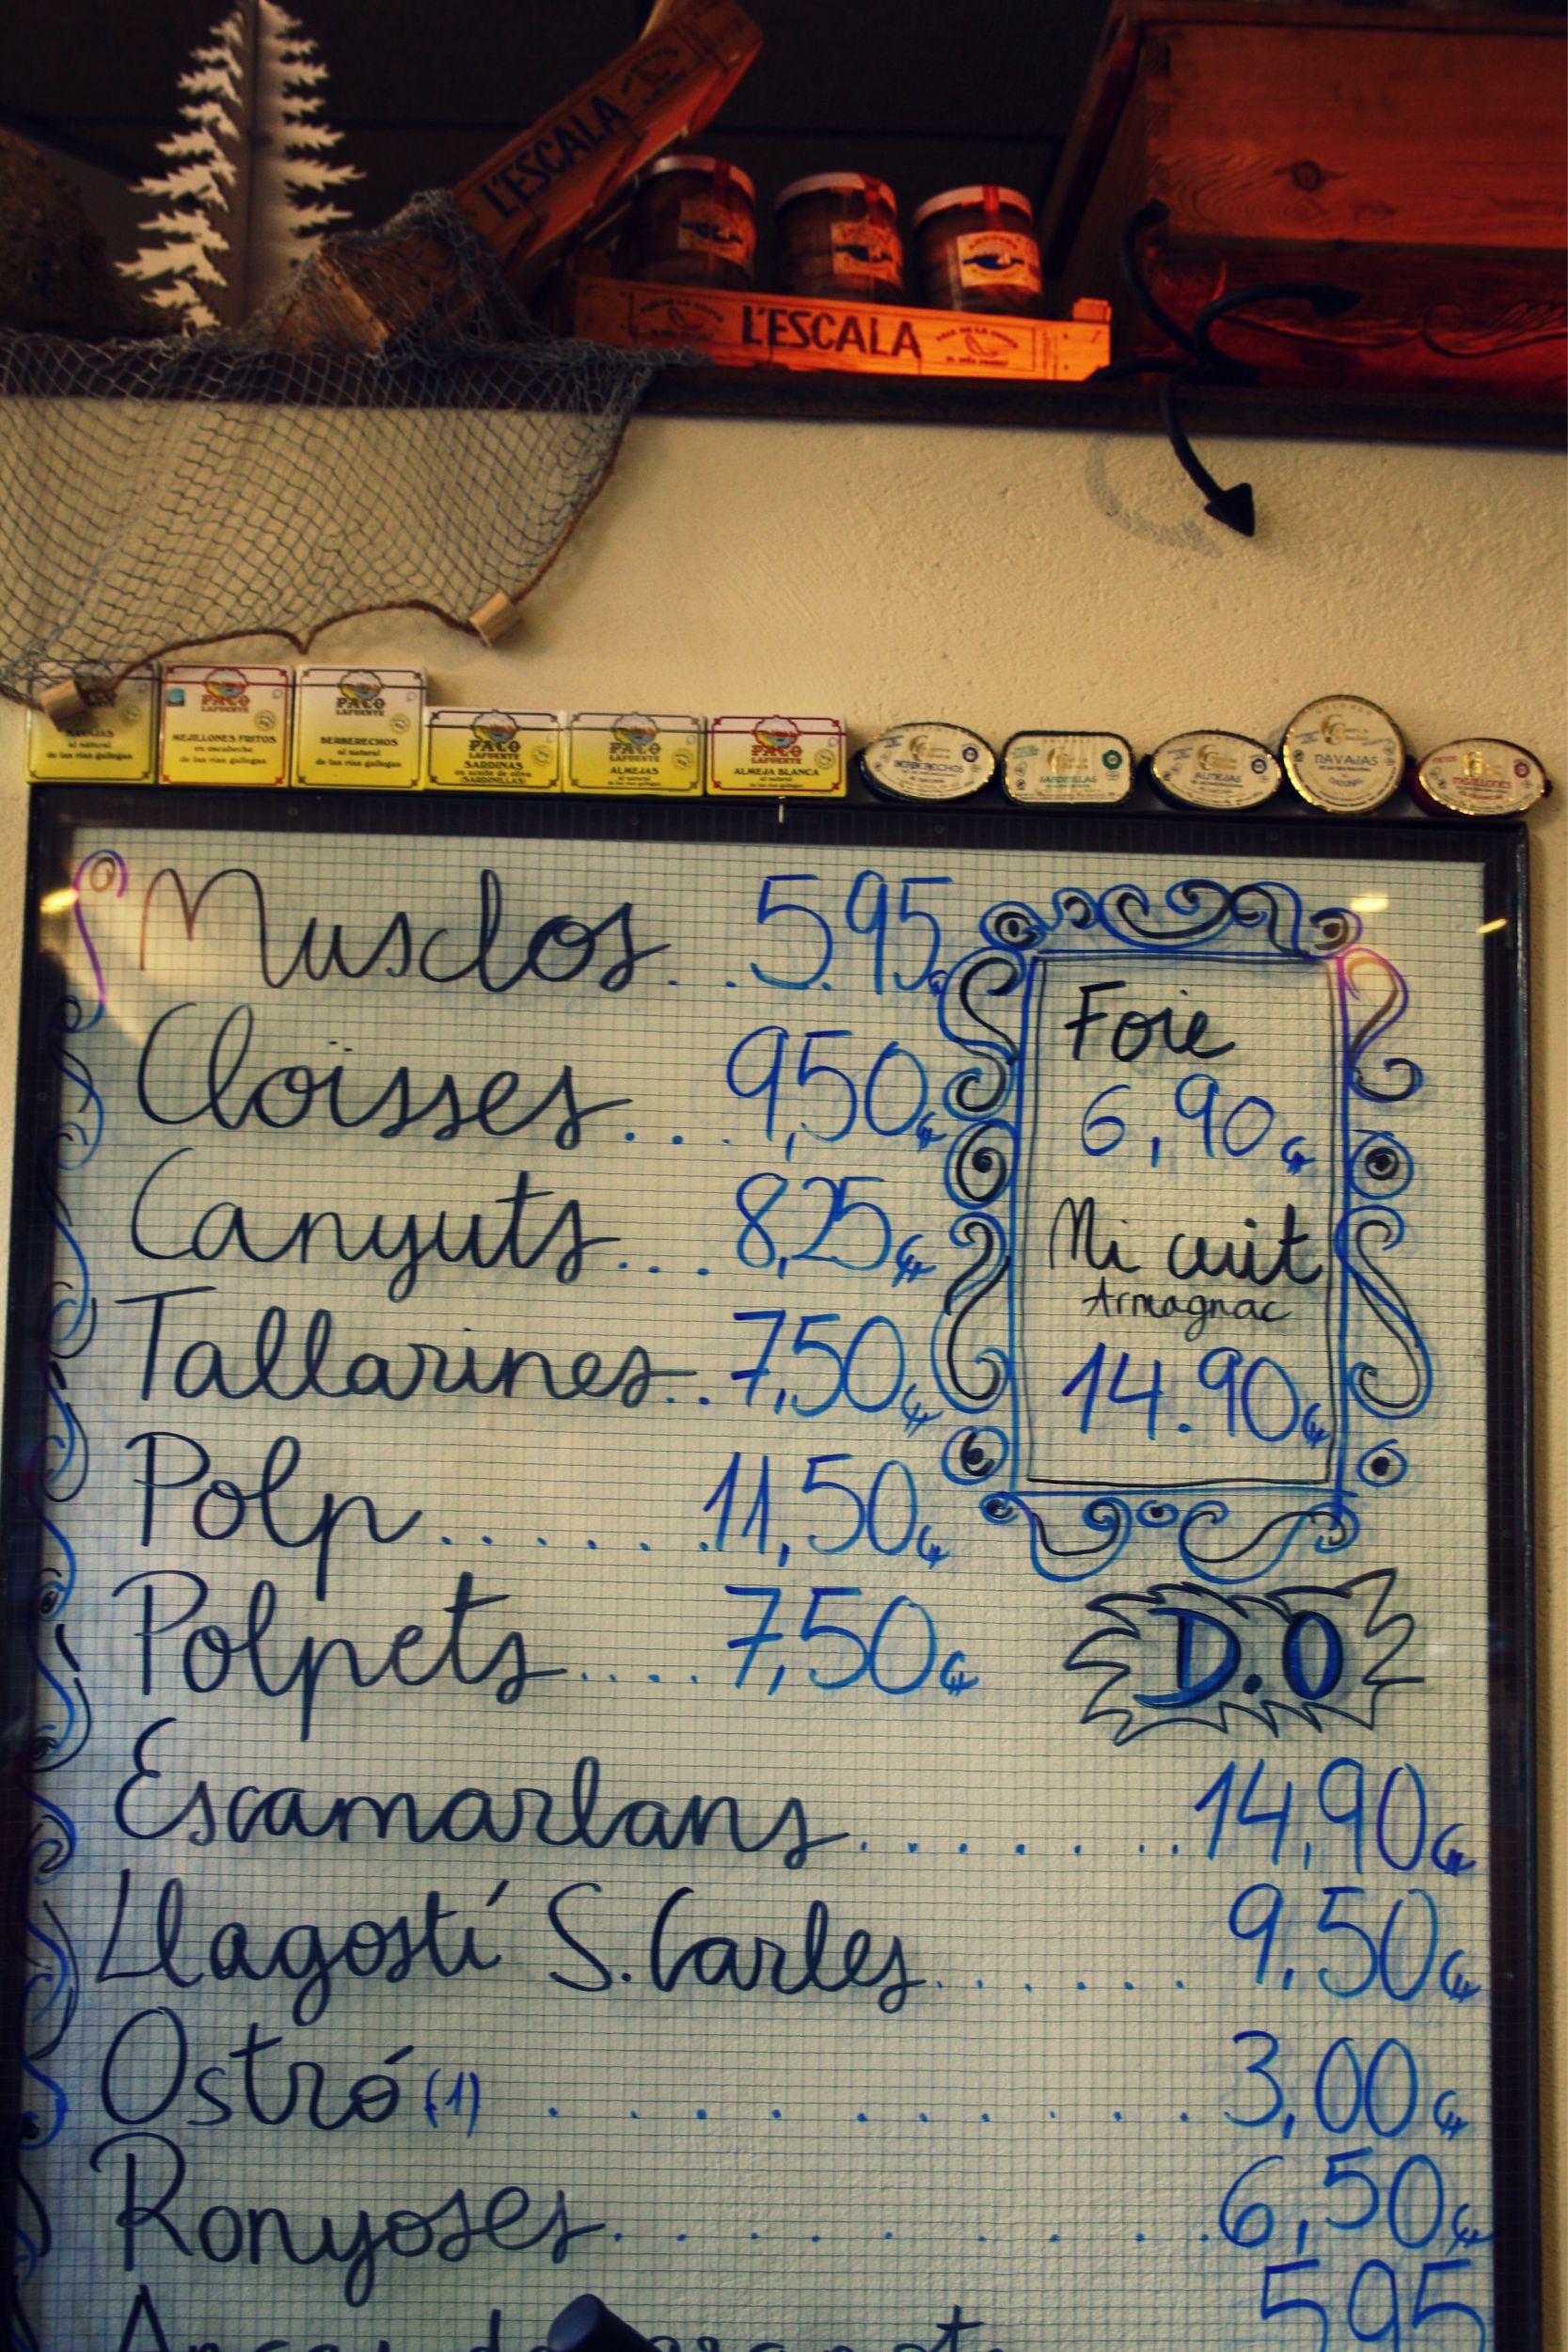 L'ESCALA
L'ESCALA
NAVAJAS
al natural
de las rías gallegas
PACO
LAFUENTE
MEJILLONES FRITOS
en escabeche
de las rías gallegas
PACO
LAFUENTE
BERBERECHOS
al natural
de las rías gallegas
PACO
LAFUENTE
SARDINAS
en aceite de oliva
SARDINILLAS
PACO
LAFUENTE
ALMEJAS
al natural
de las rías gallegas
PACO
LAFUENTE
ALMEJA BLANCA
al natural
de las rías gallegas
BERBERECHOS
SARDINILLAS
ALMEJAS
NAVAJAS
MEJILLONES
Musclos...5.95€
Cloïsses....9,50€
Canyuts...8,25€
Tallarines..7,50€
Polp.......11,50€
Polpets....7,50€
Foie
6,90€
Mi cuit
Armagnac
14.90€
D.O
Escamarlans.......14,90€
Llagostí S.Carles......9,50€
Ostró (1)..........3,00€
Ronyoses.........6,50€
5,95